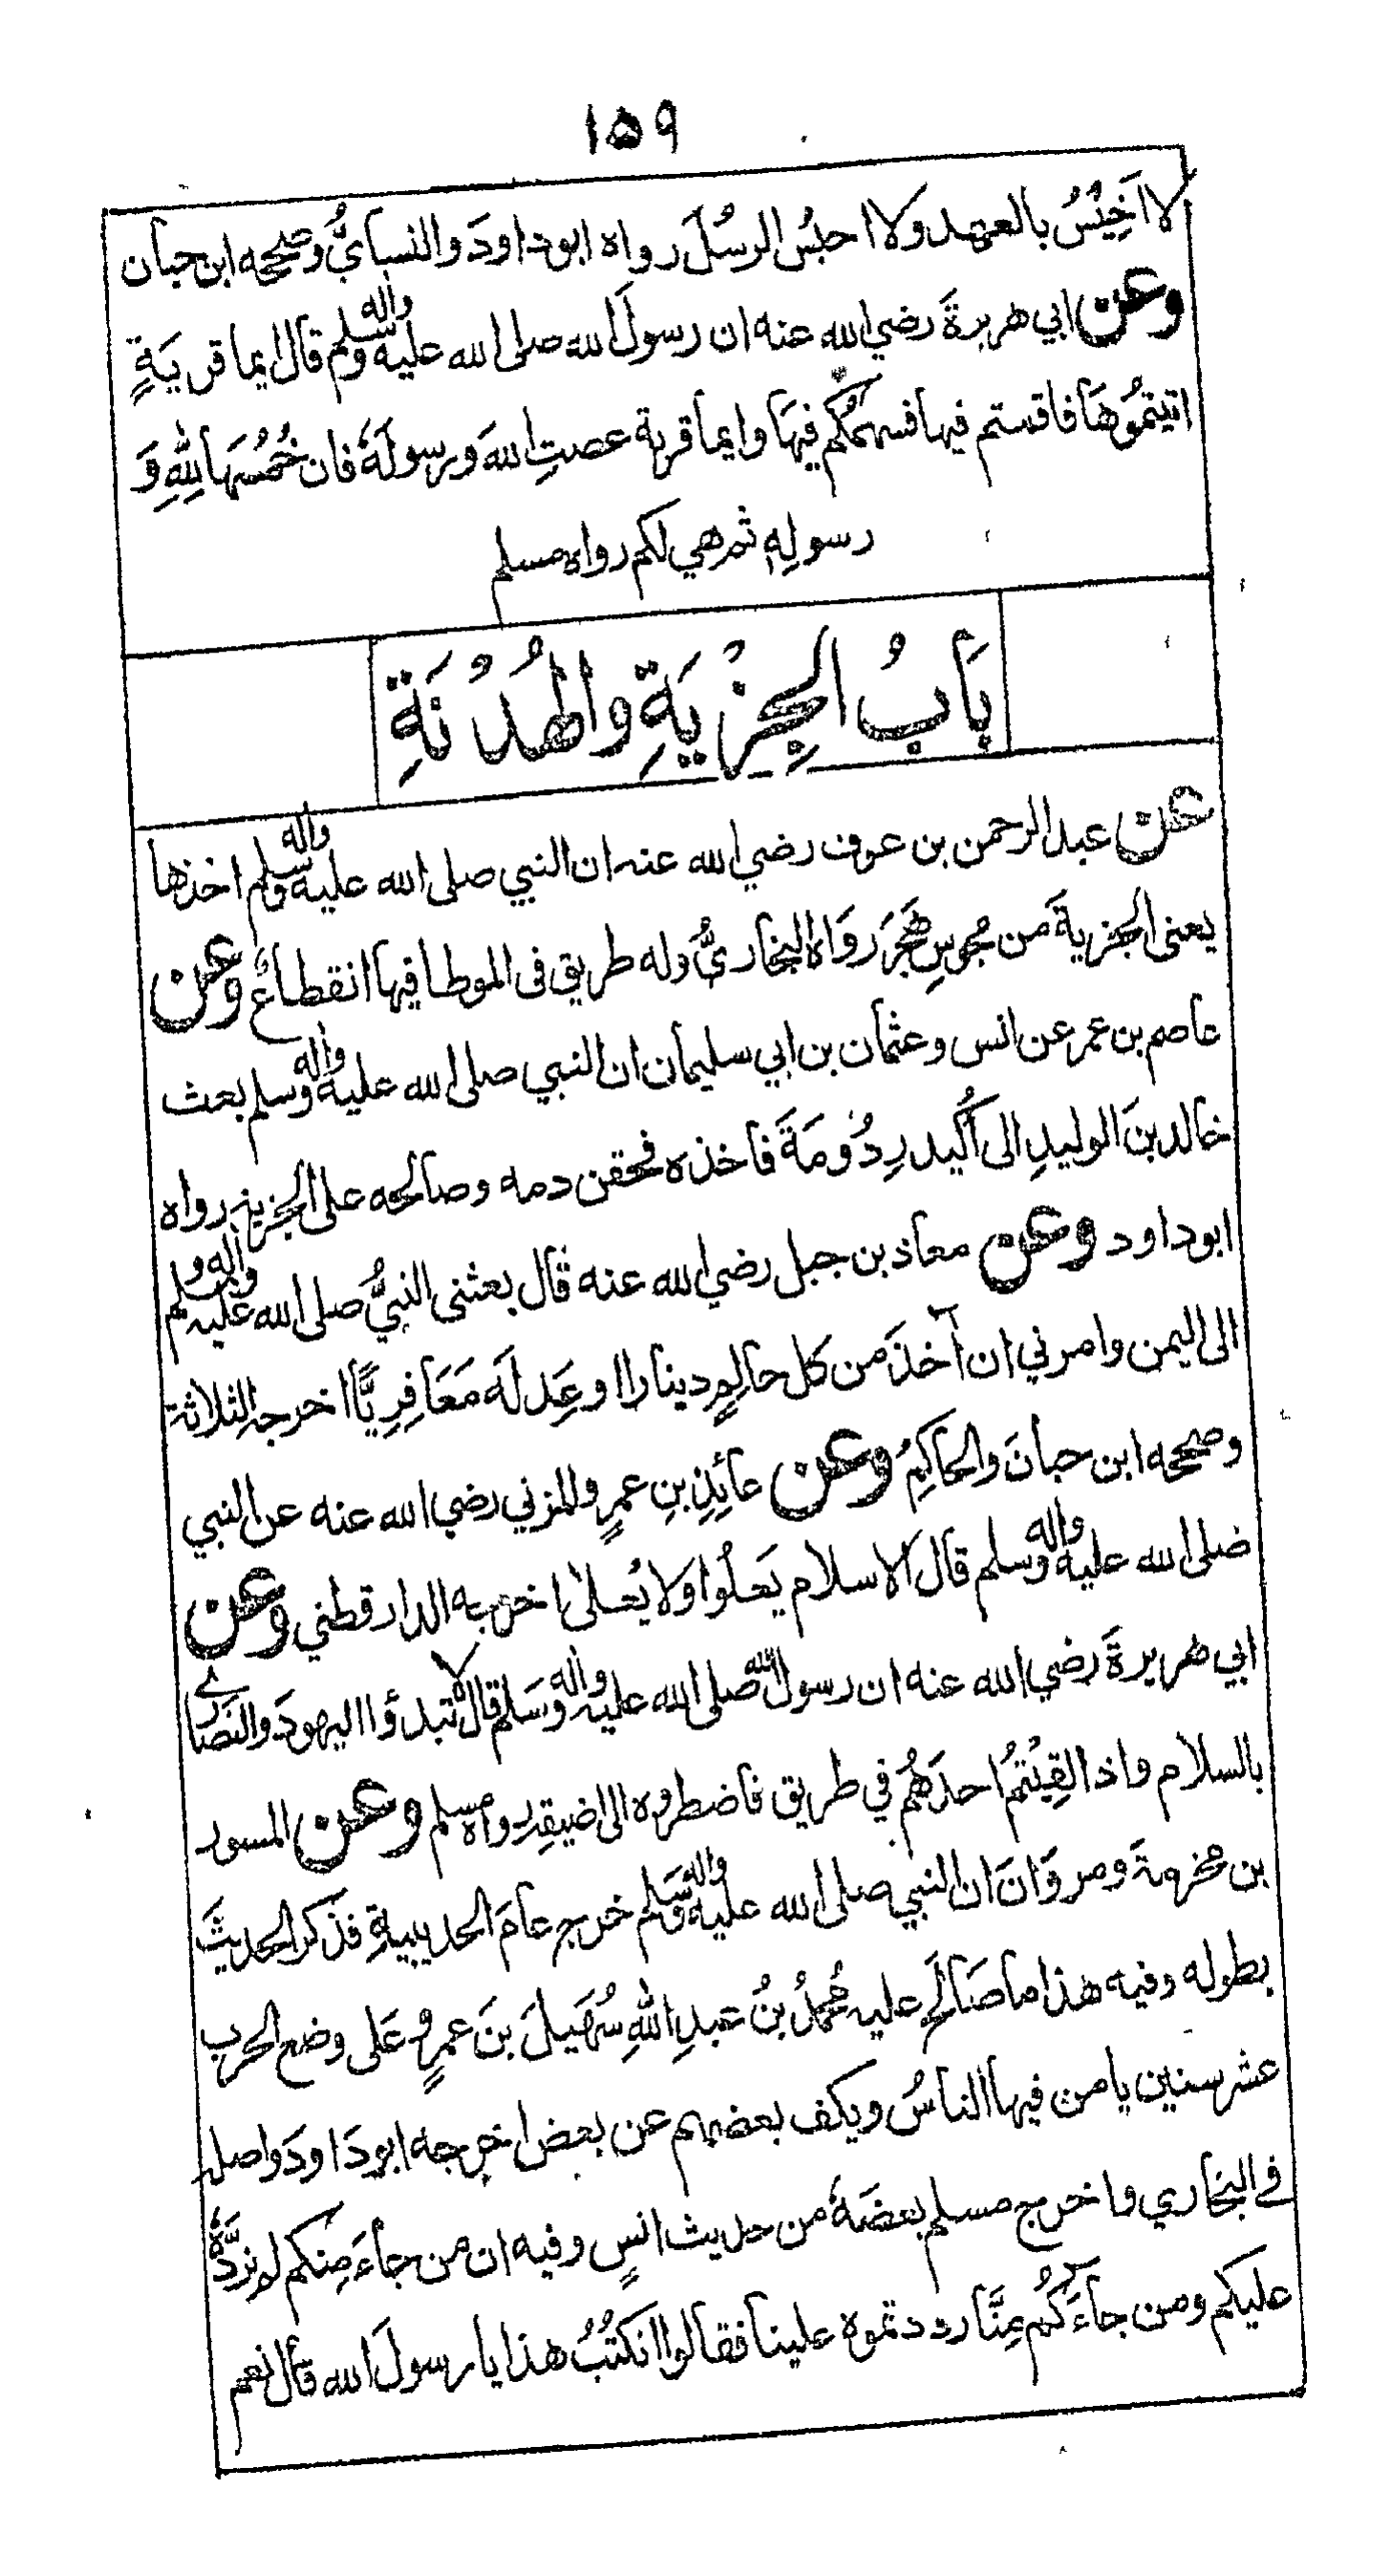 ١٥٩
لا اَخِيْسُ بالعهد ولا احبسُ الرسُلَ رواه ابوداودَ والنسبايُّ وصححه ابن حبان
وعن ابي هريرةَ رضي الله عنه ان رسولَ الله صلى الله عليه واله وسلم قال ايما قريَةٍ
اتيتمُوهَا فاقمتم فيها فسهمُكُم فيهَا وايما قرية عصتِ اللهَ ورسولَهٗ فان خُمُسَهَا لِلّٰهِ وَ
رسولِهٖ ثم هي لكم رواه مسلم
بَابُ الجِزْيَةِ والهُدْنَةِ
عن عبد الرحمن بن عوف رضي الله عنه ان النبي صلى الله عليه واله وسلم اخذها
يعنى الجزيةَ من مجُوسِ هَجَرَ روَاه البخاريُّ وله طريق فى الموطا فيها انقطاعٌ وعن
عاصم بن عمر عن انس وعثمان بن ابي سليمان ان النبي صلى الله عليه واله وسلم بعث
خالد بنَ الوليدِ الى أُكَيدِرِ دُومَةَ فاخذه فحقن دمه وصالحه على الجزية رواه
ابوداود وعن معاذ بن جبل رضي الله عنه قال بعثنى النبيُّ صلى الله عليه واله وسلم
الى اليمن وامرني ان آخذَ من كل حالِمٍ دينارا او عِدلَه مَعَافِرِيًّا اخرجه الثلاثة
وصححه ابن حبانَ والحاكِمُ وعن عائِذِ بنِ عمرٍو المزني رضي الله عنه عن النبي
صلى الله عليه واله وسلم قال الاسلام يَعلُوا ولا يُعلىٰ اخرجه الدارقطني وعن
ابي هريرةَ رضي الله عنه ان رسول الله صلى الله عليه واله وسَلم قال لا تبدؤا اليهودَ والنصَارٰے
بالسلام واذا لقِيْتمُ احدَهُم في طريق فاضطروه الى اضيقِه رواه مسلم وعن المسور
بن مخرمةَ ومروَانَ ان النبي صلى الله عليه واله وسَلم خرج عامَ الحديبيةِ فذكر الحديثَ
بطوله وفيه هذا ما صَالَح عليه محُمدُ بنُ عبدِ اللهِ سُهَيلَ بنَ عمرٍو عَلى وضع الحرب
عشر سنين يامن فيها الناسُ ويكف بعضهم عن بعض اخرجه ابودَاودَ واصله
فے البخاري واخرج مسلم بعضَهٗ من حديث انسٍ وفيه ان من جاءَ مِنكم لم نردَّهُ
عليكم ومن جاءَكُم مِنَّا رددتموه علينا فقالوا انكتُبُ هذا يا رسولَ الله قال نعم